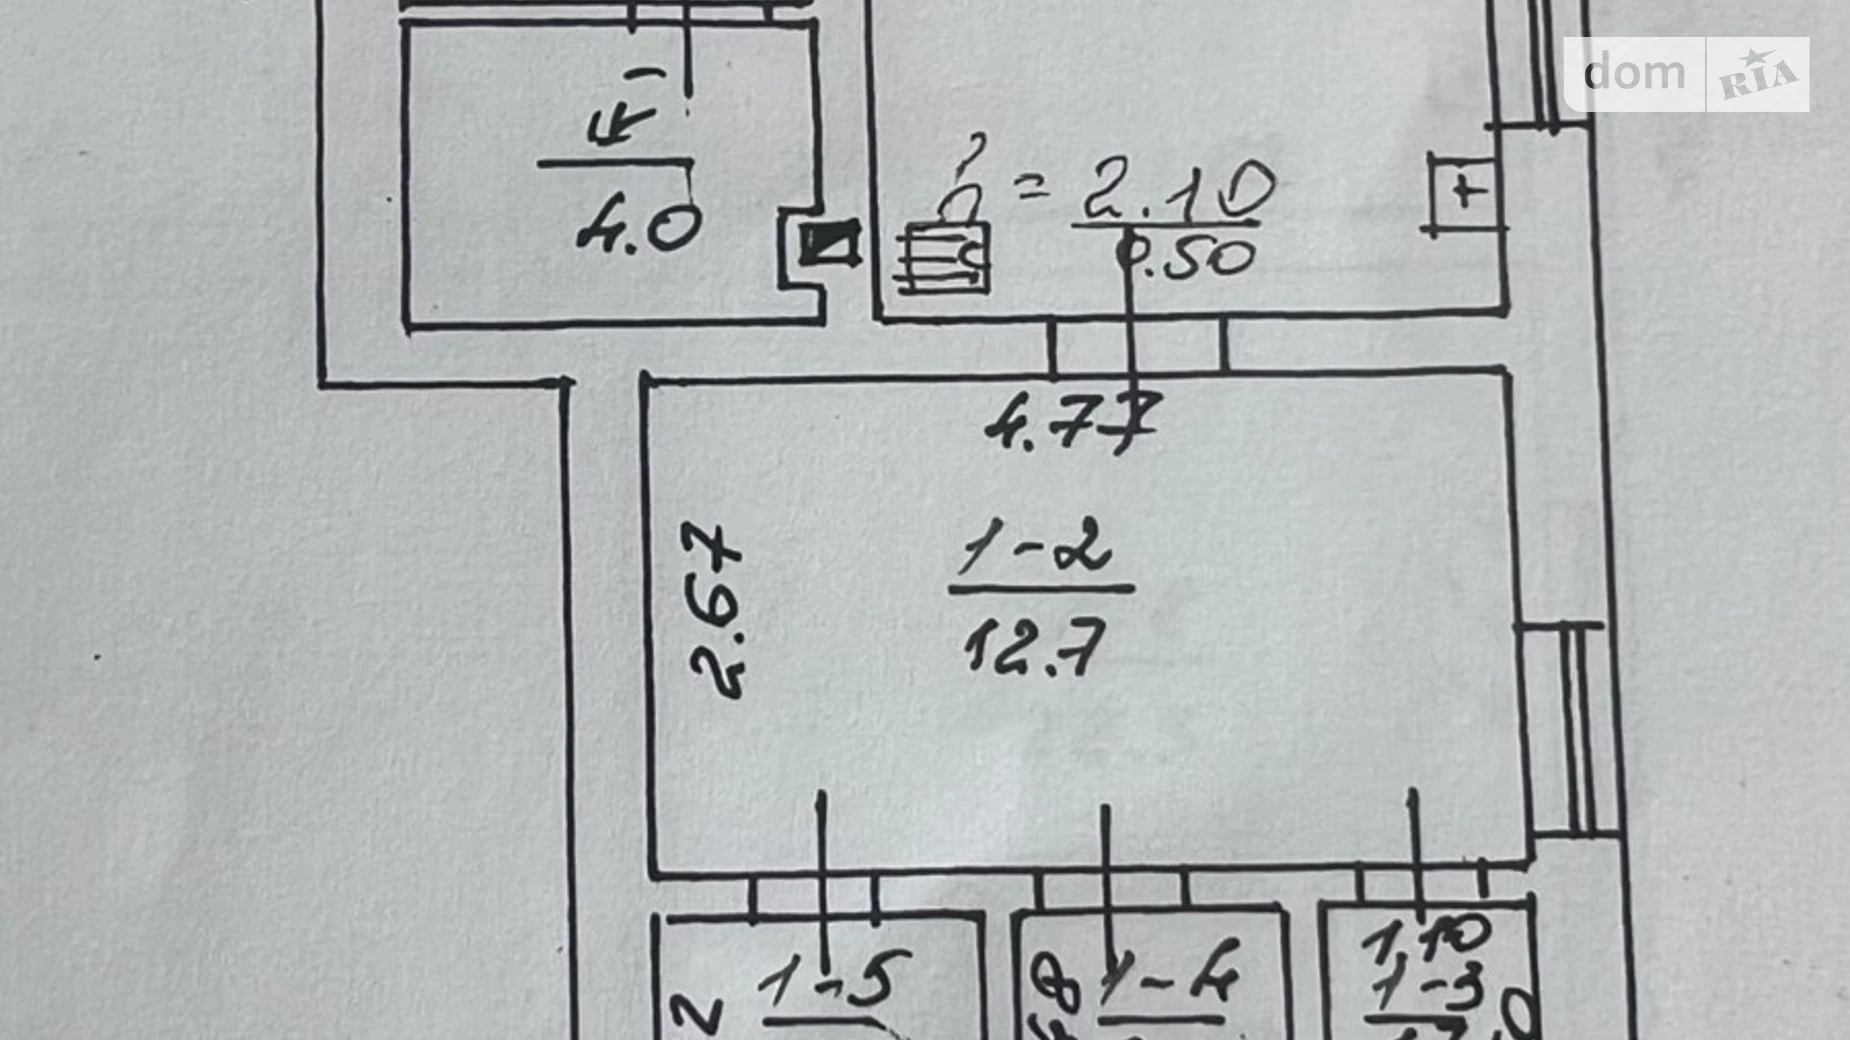 dom RIA
I
4.0
2.10
h =
0.50
4.77
2.67
1-2
12.7
1-5
2
1-4
8
1,10
1-3